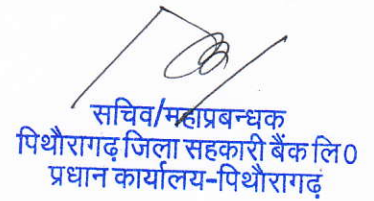 सचिव/महाप्रबन्धक
पिथौरागढ़ जिला सहकारी बैंक लि0
प्रधान कार्यालय-पिथौरागढ़